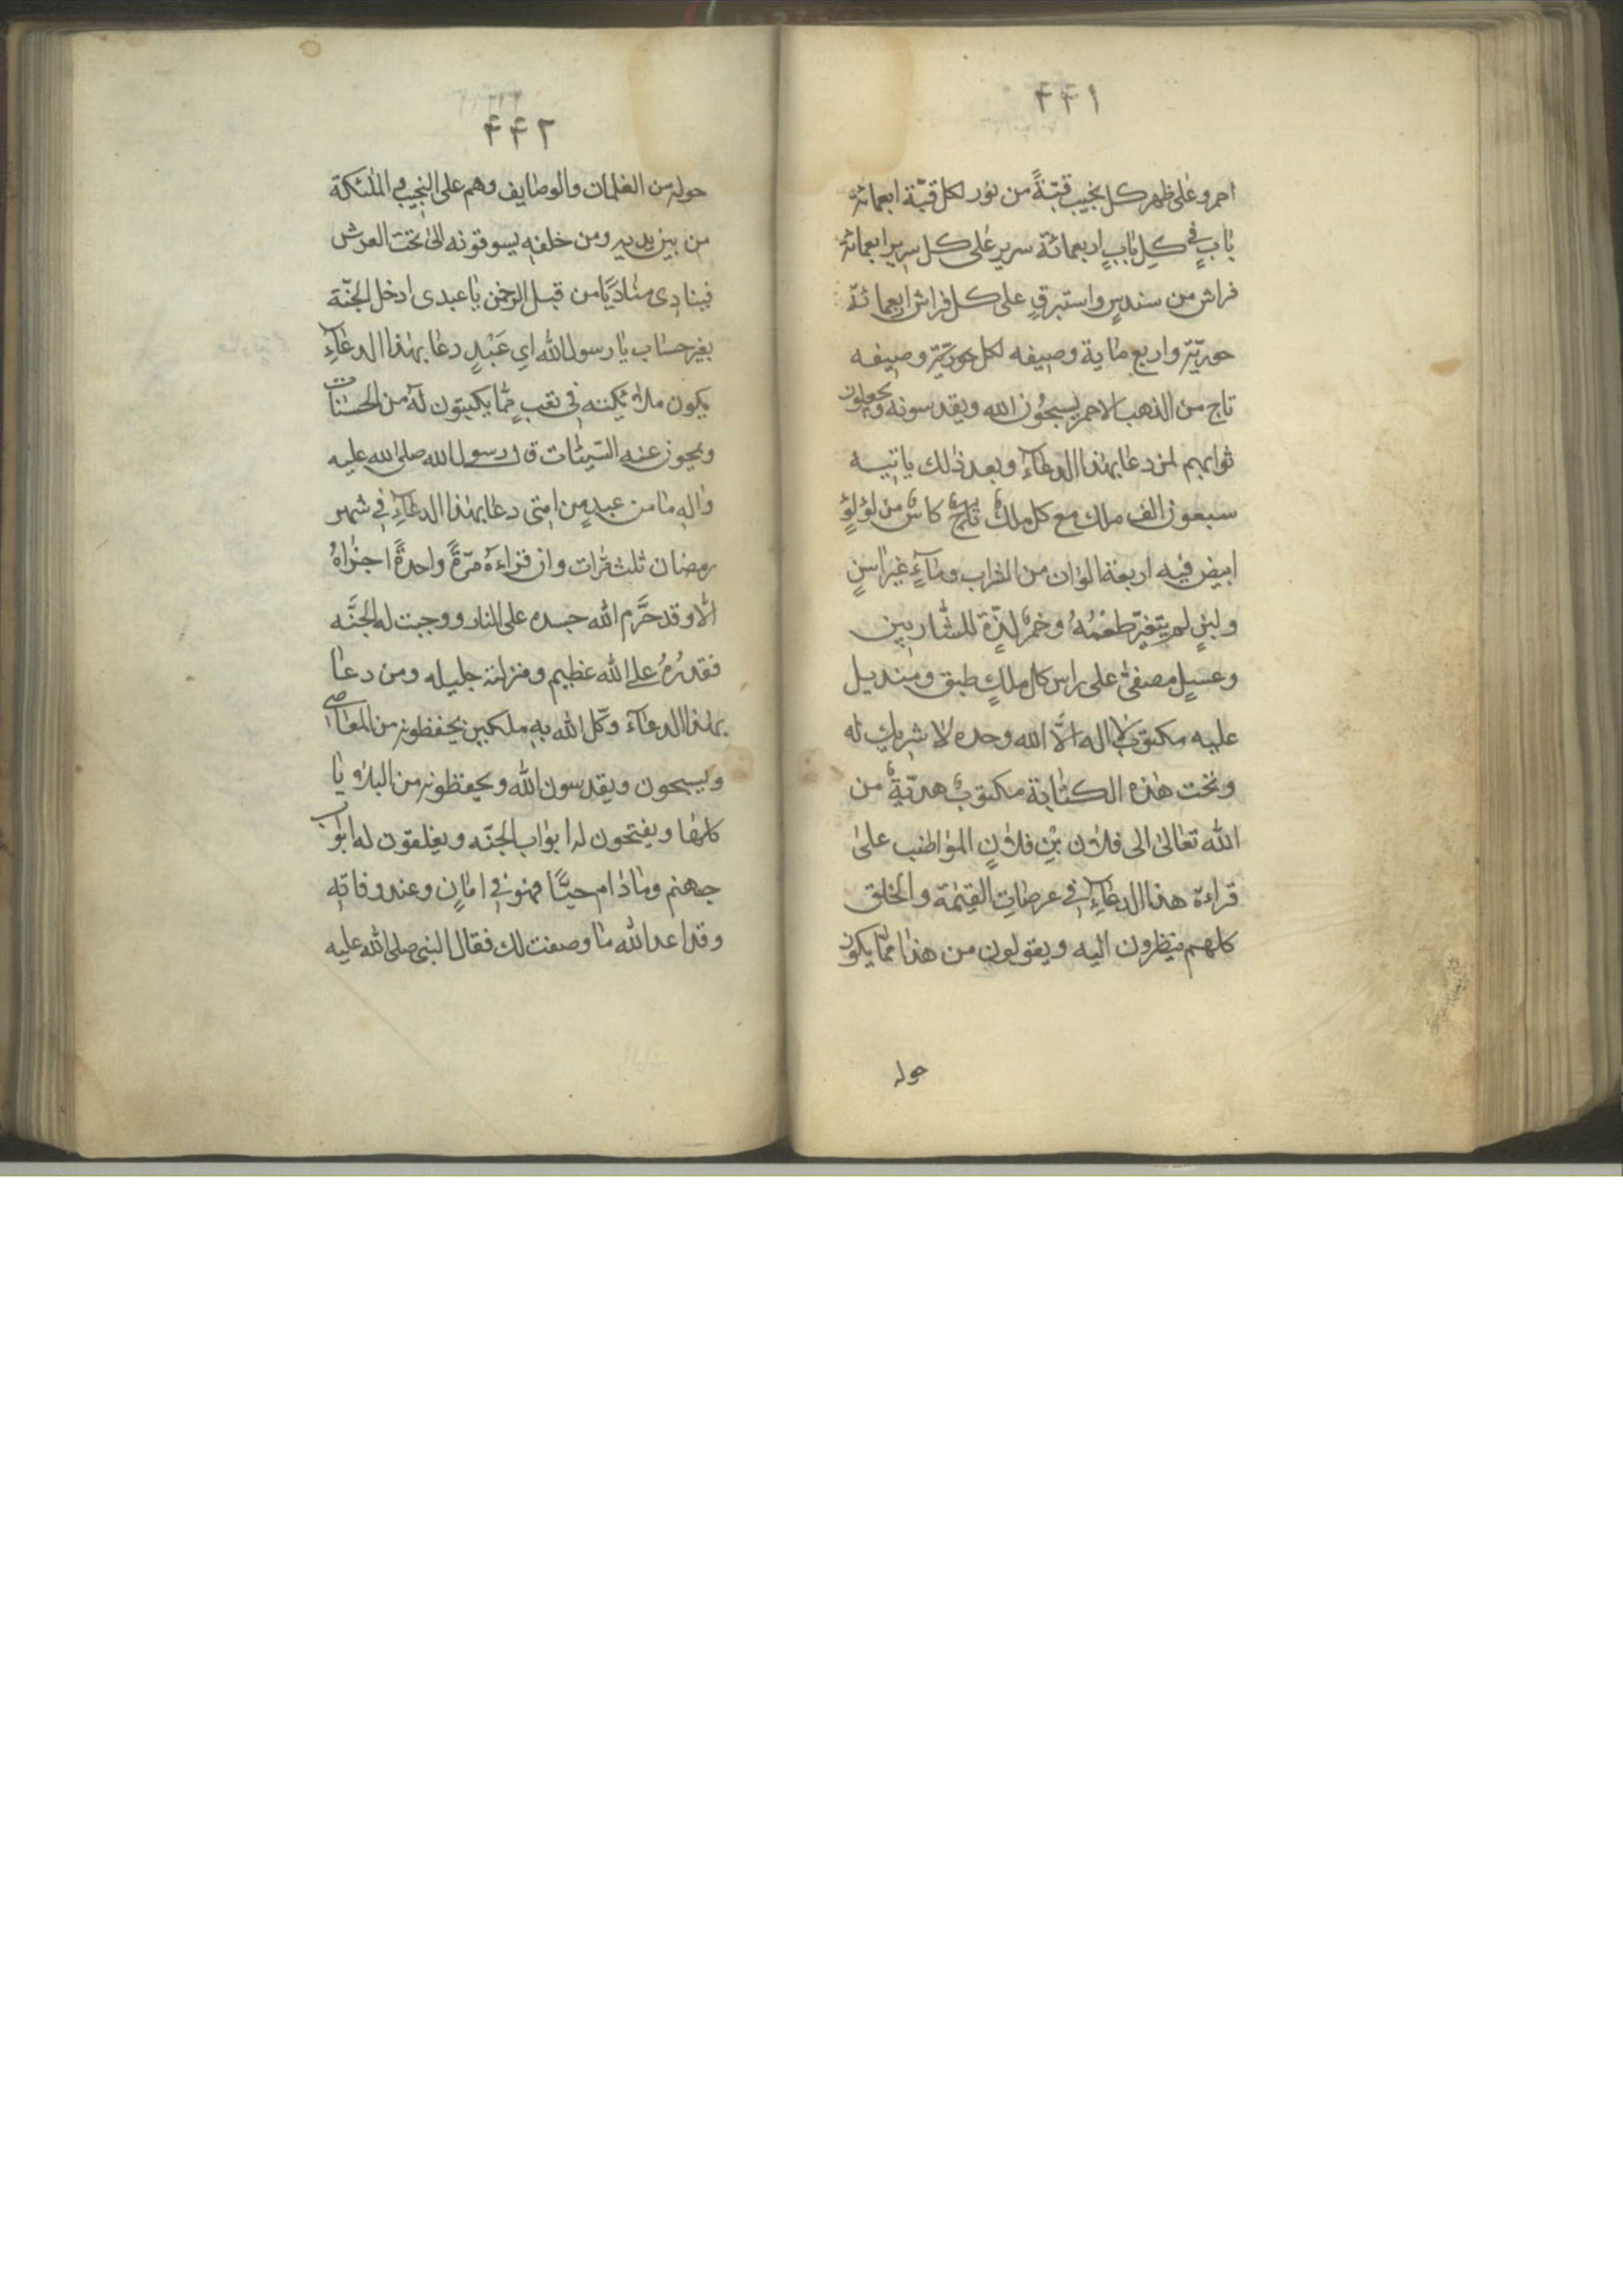 ۴۴۱
احمر وعلى ظهر كل نجيب قبّةً من نور لكل قبّة اربعمائة
بابٍ في كلِ بابٍ اربعمائة سرير على كل سرير اربعمائة
فراش من سندسٍ واستبرقٍ على كل فراش اربعمائة
حوريّة واربع ماية وصيفه لكل حوريّة وصيفه
تاج من الذهب الاحمر يسبحُون الله ويقدسونه ويجعلون
ثوابهم لمن دعا بهذا الدعآء وبعد ذلك ياتيه
سبعون الف ملك مع كل ملك تاجٌ كاسٌ من لؤلؤٍ
ابيض فيه اربعة الوان من الشراب ومآءٍ غير اسنٍ
ولبنٍ لم يتغيّر طعْمُهُ وخمرٌ لذّة للشّاربين
وعسلٍ مصفىٌ على راس كل ملكٍ طبق ومنديل
عليه مكتوبٌ لا اله الّا الله وحده لا شريك له
وتحت هذه الكتابة مكتوبٌ هديّةٌ من
الله تعالىٰ الى فلان بْنِ فلانٍ المواظب علىٰ
قراءة هذا الدعآءِ في عرصاتِ القيٰمة والخلق
كلهم ينظرون اليه ويقولون من هذا ممّا يكون
حوله
۴۴۲
حوله من الغلمان والوصايف وهم على النجيب والملئكة
من بين يديه ومن خلفهِ يسوقونه الىٰ تحت العرش
فينادى مناديًا من قبل الرحمٰن يا عبدى ادخل الجنّة
بغير حساب يا رسول الله اي عَبْدٍ دعا بهذا الدعآءِ
يكون ملائكته في تعبٍ ممّا يكتبون لهُ من الحسنات
ويمحون عنه السّيئات قال رسول الله صلى الله عليه
واله ما من عبدٍ من امتى دعا بهذا الدعآءِ في شهر
رمضان ثلث مرّات وان قراءهُ مرّةً واحدةً اجزاهُ
الّا وقد حرَّم الله جسده على النار ووجبت له الجنَّه
فقدرُهُ على الله عظيم ومنزلته جليله ومن دعا
بهذا الدعآء وكّل الله بهِ ملكين يحفظونه من المعاصى
ويسبحون ويقدسون الله ويحفظونه من البلاويا
كلها ويفتحون له ابواب الجنّه ويغلقون له ابواب
جهنم وما دام حيًّا فهو في امانٍ وعند وفاتهِ
وقد اعد الله ما وصفت لك فقال النبى صلى الله عليه